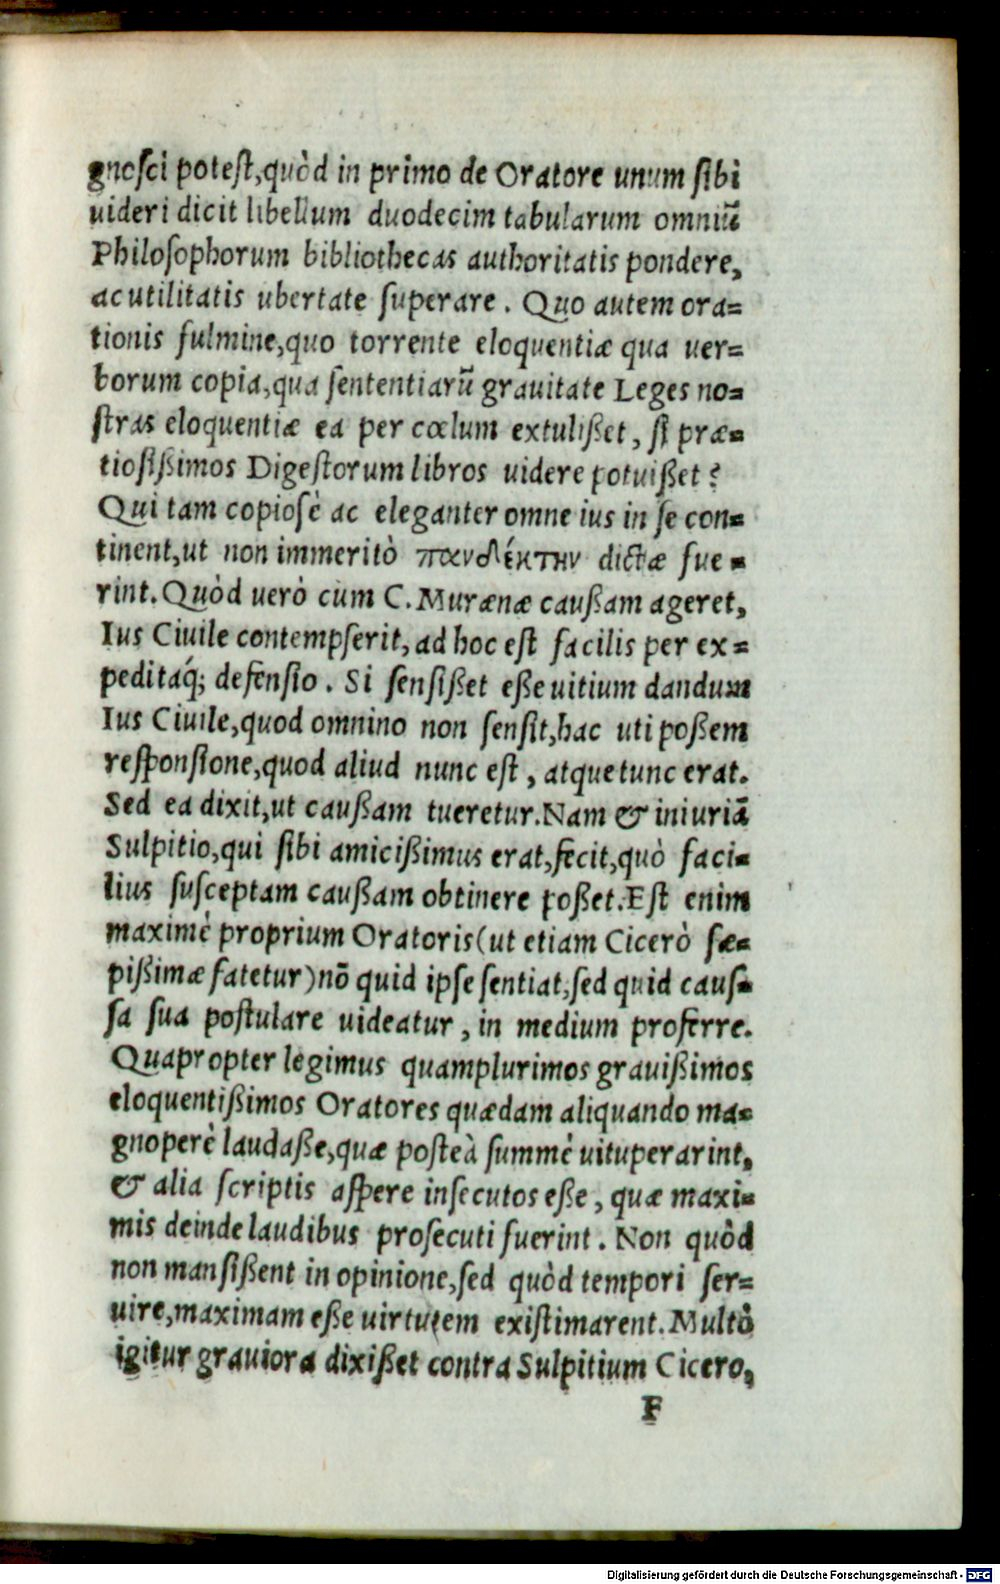 gnosci potest,quòd in primo de Oratore unum sibi
uideri dicit libellum duodecim tabularum omniũ
Philosophorum bibliothecas authoritatis pondere,
ac utilitatis ubertate superare. Quo autem ora=
tionis fulmine,quo torrente eloquentiæ qua uer=
borum copia,qua sententiarũ grauitate Leges no=
stras eloquentiæ ea per cœlum extulißet, si præ=
tiosißimos Digestorum libros uidere potuißet?
Qui tam copiosè ac eleganter omne ius in se con=
tinent,ut non immeritò πανδέκτην dictæ fue=
rint. Quòd uerò cùm C. Murænæ caußam ageret,
Ius Ciuile contempserit, ad hoc est facilis per ex=
peditaq́; defensio. Si sensißet eße uitium dandum
Ius Ciuile,quod omnino non sensit,hac uti poßem
responsione,quod aliud nunc est, atque tunc erat.
Sed ea dixit,ut caußam tueretur. Nam & iniuriã
Sulpitio,qui sibi amicißimus erat,fecit,quò faci=
lius susceptam caußam obtinere poßet. Est enim
maximè proprium Oratoris(ut etiam Cicerò sæ=
pißimæ fatetur)nõ quid ipse sentiat,sed quid caus=
sa sua postulare uideatur, in medium proferre.
Quapropter legimus quamplurimos grauißimos
eloquentißimos Oratores quædam aliquando ma=
gnoperè laudaße,quæ posteà summè uituperarint,
& alia scriptis aspere insecutos eße, quæ maxi=
mis deinde laudibus prosecuti fuerint. Non quòd
non mansißent in opinione,sed quòd tempori ser=
uire,maximam eße uirtutem existimarent. Multò
igitur grauiora dixißet contra Sulpitium Cicero,
F
Digitalisierung gefördert durch die Deutsche Forschungsgemeinschaft - DFG